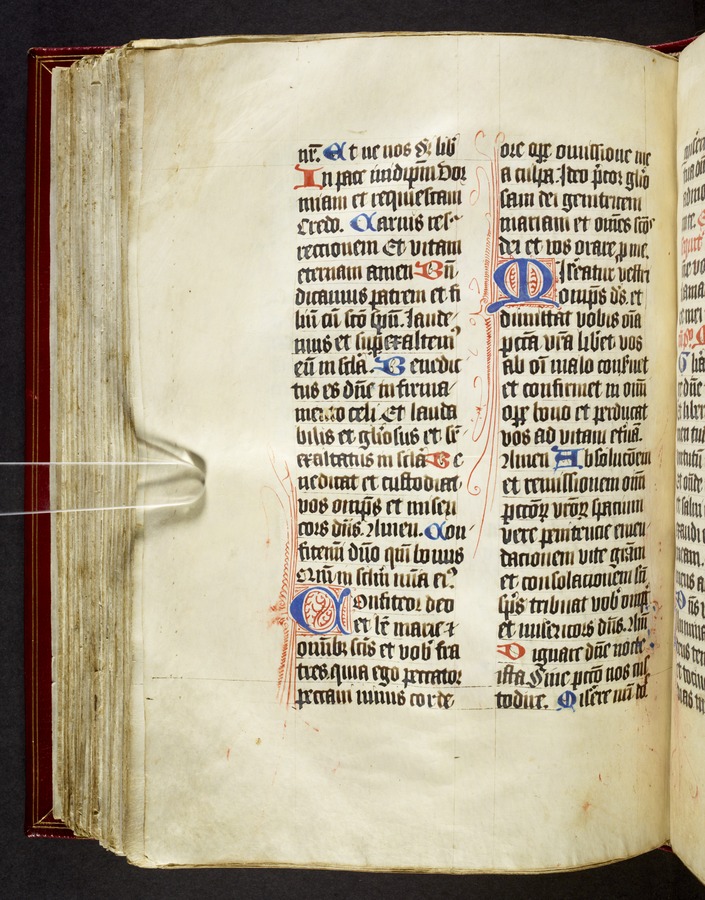 nr̄. Et ne nos S; lib̄
In pace in idip̄m Dor
miam et requiescam
Credo. Carnis res
rectionem Et vitam
eternam amen Bn̄
dicamus patrem et fi
liū cū scō sp̄u. laude
mus et sup̄exaltem9
eū in sc̄la. Benedic
tus es dn̄e in firma
mento celi Et lauda
bilis et gl̄osus et s̄
exaltatus in sc̄la Be
nedicat et custodiat
vos omp̄s et miseri
cors dn̄s. Amen. Con
fitemī dn̄o qm̄ bonus
Confiteor deo
et bē marie ⁊
omīb; scīs et vob̄ fra
tres quia ego peccator
peccaui nimis corde
ore op̄e omissione me
a culpa. Ideo p̄cor glīo
sam dei genitricem
mariam et om̄es scō9
dei et vos orare p̱ me.
Misereatur vestri
omp̄s d̄s. et
dimittat vobis oīa
pccā vrā lib̄et vos
ab oī malo conseruet
et confirmet in om̄i
op̄e bono et perducat
vos ad vitam et̄nā.
Amen Absolucōem
et remissionem oīm
pccōꝝ vrōꝝ spacium
vere penitencie emen
dacionem vite grām
et consolacionem scī
sp̄s tribuat vob̄ omp̄s
et misericors dn̄s. Am̄
Dignare dn̄e nocte
ista Sine pccō nos
todire. Misere